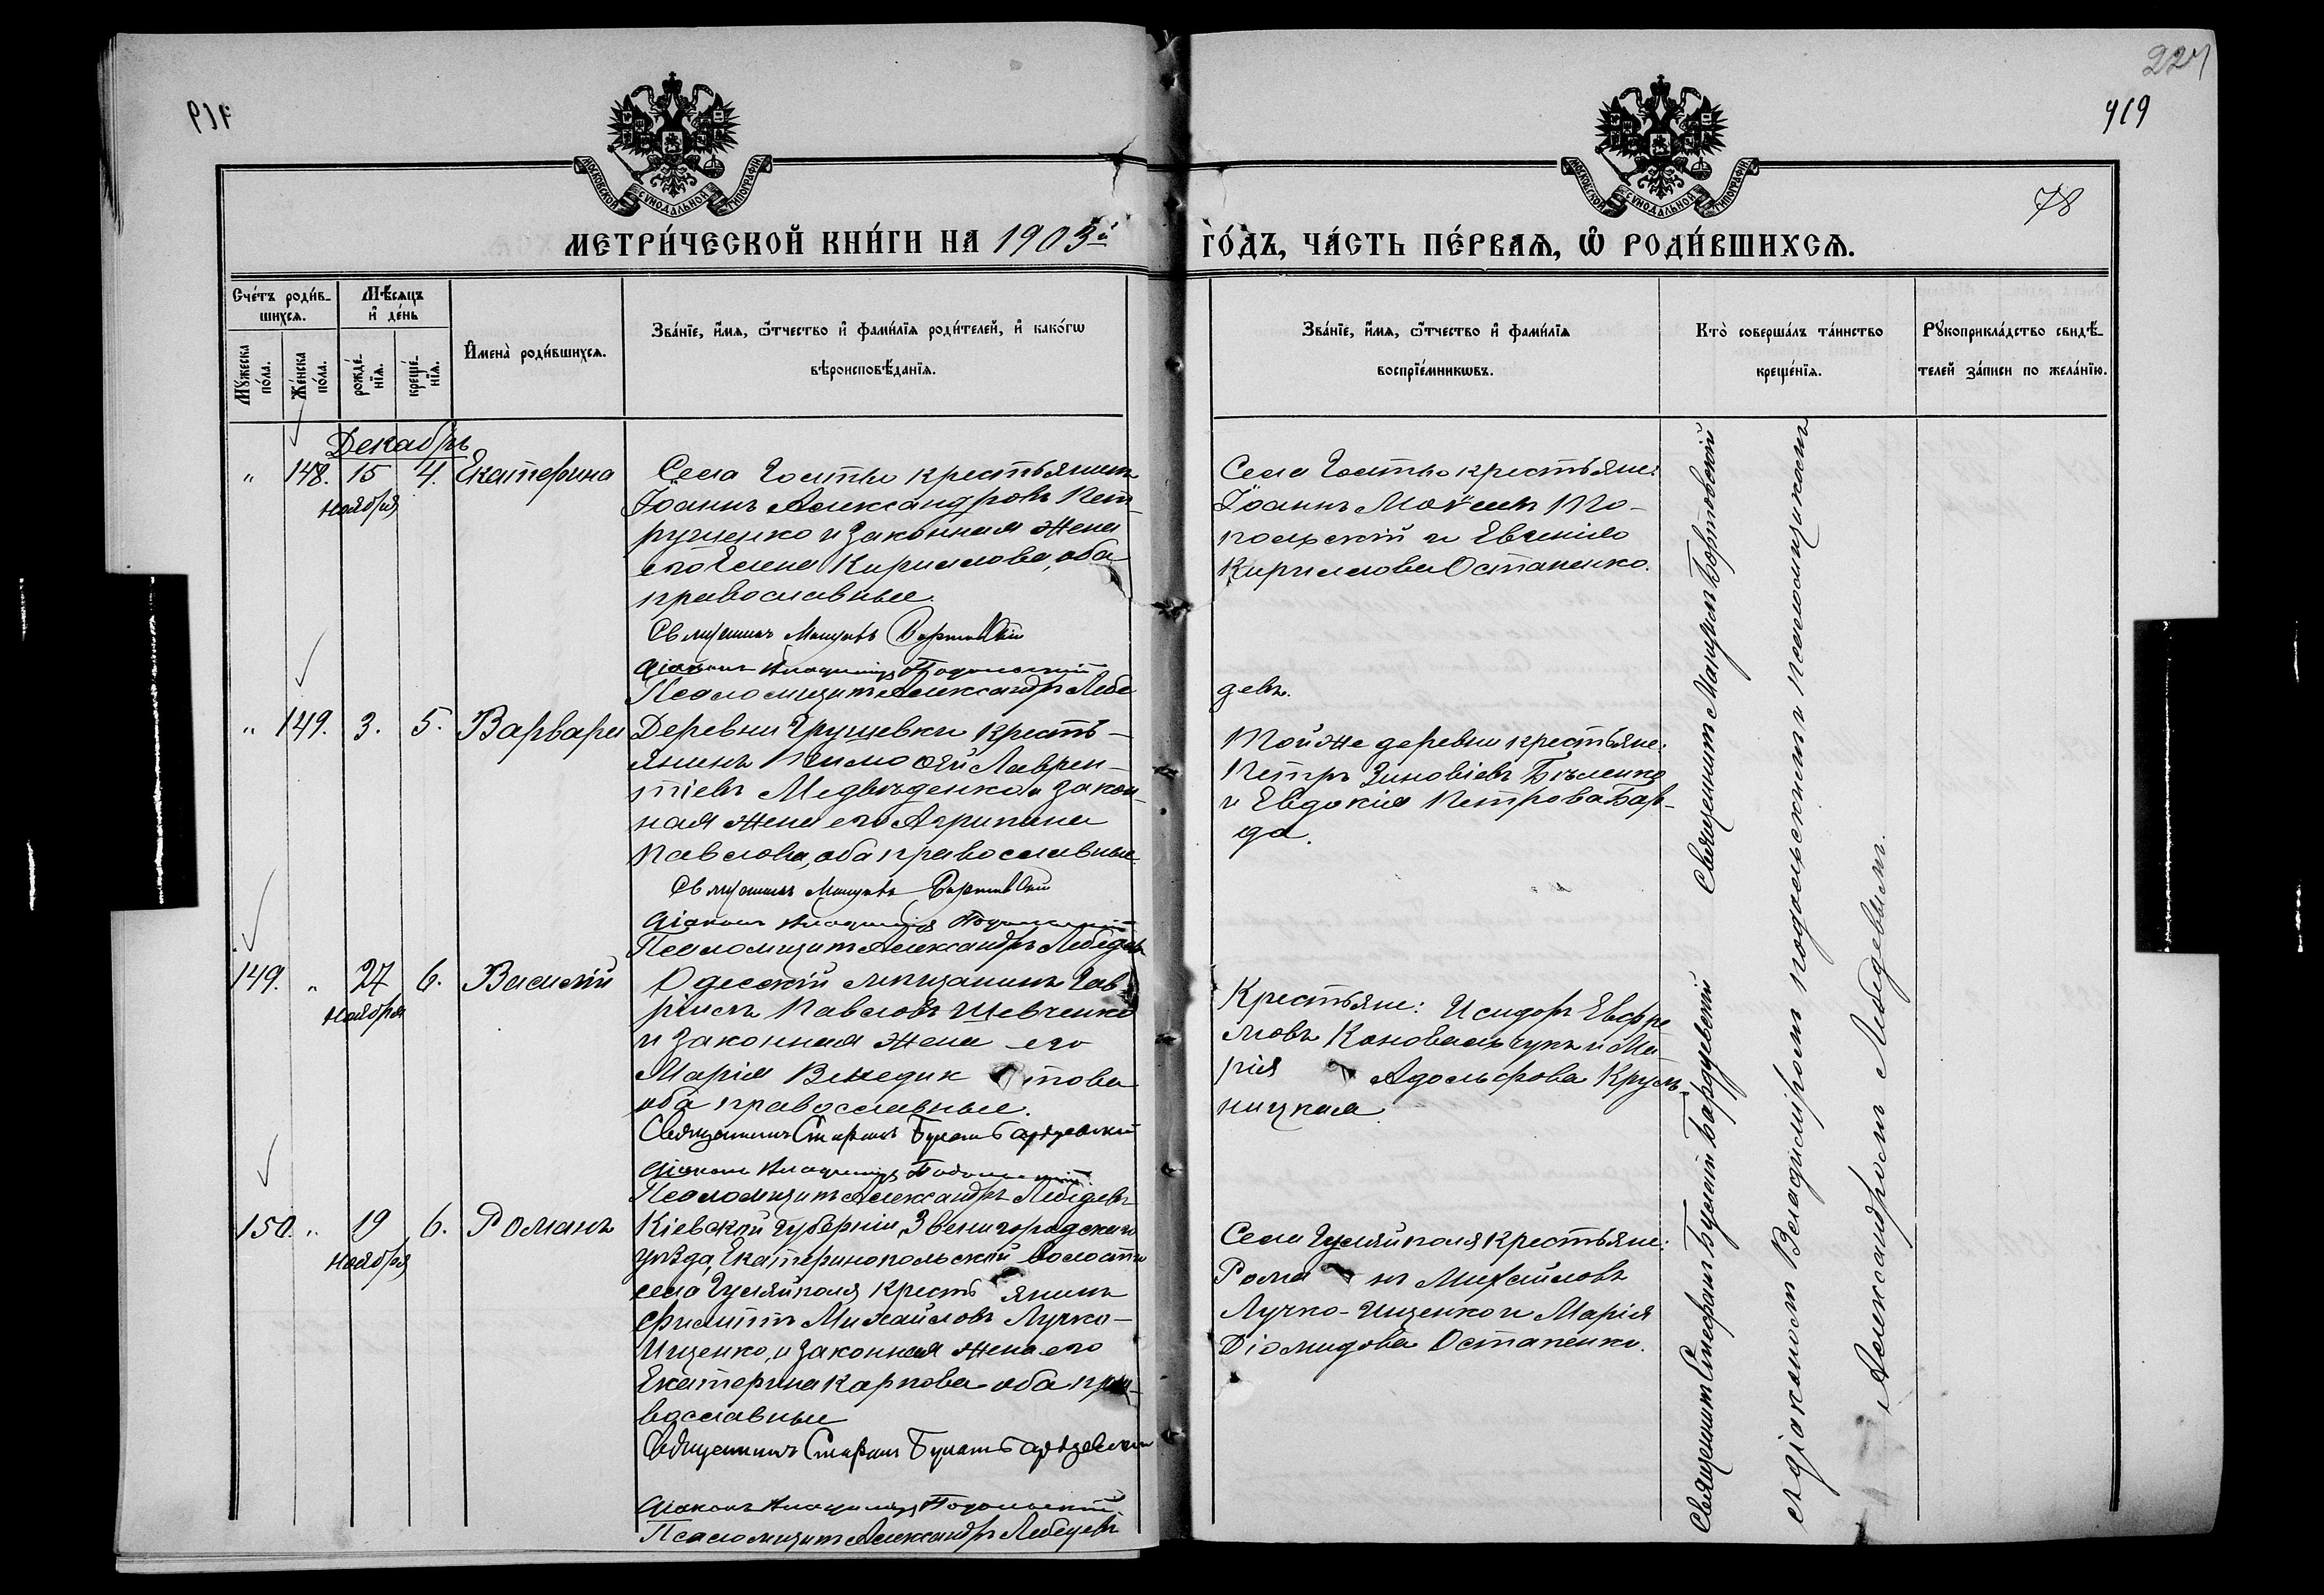 919
227
919
78
МОСКОВСКОЙ СѴНОДАЛЬНОЙ ТИПОГРАФІИ
МОСКОВСКОЙ СѴНОДАЛЬНОЙ ТИПОГРАФІИ
МЕТРИ́ЧЕСКОЙ КНИ́ГИ НА 1903й
ГО́ДЪ, ЧА́СТЬ ПЕ́РВАѦ, Ѡ҆ РОДИ́ВШИХСѦ.
Сче́тъ роди́в-
шихсѧ.
Мꙋ́жеска
по́ла.
Же́нска
по́ла.
Мѣ́сѧцъ
и҆ де́нь
рожде́-
нїѧ.
креще́-
нїѧ.
И҆мена̀ роди́вшихсѧ.
Зва́нїе, и҆́мѧ, ѻ҆́тчество и҆ фами́лїѧ роди́телей, и҆ како́гѡ
вѣроисповѣ́данїѧ.
Зва́нїе, и҆́мѧ, ѻ҆́тчество и҆ фами́лїѧ
воспрїе́мникѡвъ.
Кто̀ соверша́лъ та́инство
креще́нїѧ.
Рꙋкоприкла́дство свидѣ́-
телей за́писи по жела́нїю.
Декабрь
" 148. 15 4. Екатерина
Ноября
Села Гольты крестьянинъ
Іоаннъ Александровъ Пет-
рушенко и законная жена
его Елена Кириллова, оба
православные.
Священникъ Мануилъ Бортовскій
Діаконъ Владиміръ Подольскій
Псаломщикъ Александръ Лебе
Села Гольты крестьяне:
Іоаннъ
польскій и Евгенія
Кириллова Остапенко.
девъ.
" 149. 3. 5. Варвара
Деревни Грушевки кресть-
янинъ Тимоѳей Лаврен-
тіевъ Медвѣденко и закон-
ная жена его Агрипина
Павлова, оба православные.
Священникъ Мануилъ Бортовскій
Діаконъ Владиміръ Подольскій
Псаломщикъ Александръ Лебедевъ
Той же деревни крестьяне:
Петръ Зиновіевъ Бѣленко
и Евдокія Петрова Бар-
да.
149. " 27 6. Василій
Ноября
Одесскій мѣщанинъ Гав-
ріилъ Павловъ Шевченко
и законная жена его
Марія Венедик това
оба православные.
Священникъ Стефанъ Бугаславскій
Діаконъ Владиміръ Подольскій
Псаломщикъ Александръ Лебедевъ
Крестьяне: Исидоръ Евфре
мовъ Коновальчукъ и Ма-
рія Адольфова Круль-
ницкая.
150. " 19 6. Романъ
Ноября
Кіевской губерніи, Звенигородскаго
уѣзда, Екатеринопольской волости
села Гуляйполя кресть янинъ
Филиппъ Михайловъ Лучко-
Ищенко, и законная жена его
Екатерина Карпова оба пра-
вославные
Священникъ Стефанъ
Діаконъ Владиміръ Подольскій
Псаломщикъ Александръ Лебедевъ
Села Гуляйполя крестьяне:
Рома нъ Михайловъ
Лучко-Ищенко и Марія
Діомидова Остапенко.
Священникъ Мануилъ Бортовскій
Священникъ Стефанъ
съ діакономъ Владиміромъ Подольскимъ и псаломщикомъ
Александромъ Лебедевымъ.